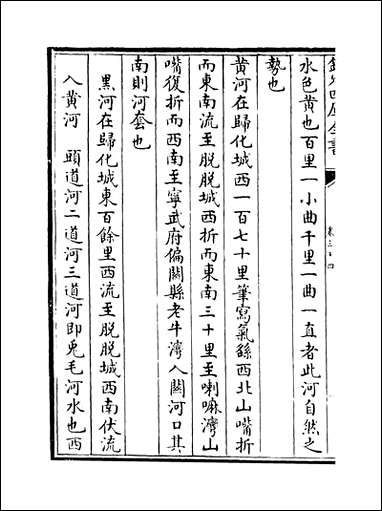 欽定四庫全書
卷三十四
水色黄也百里一小曲千里一曲一直者此河自然之
勢也
黄河在歸化城西一百七十里筆寫氣鯀西北山嘴折
而東南流至脱脱城西折而東南三十里至喇嘛灣山
嘴復折而西南至寧武府偏關縣老牛灣入關河口其
南則河套也
黒河在歸化城東百餘里西流至脱脱城西南伏流
入黄河 頭道河二道河三道河即兎毛河水也西